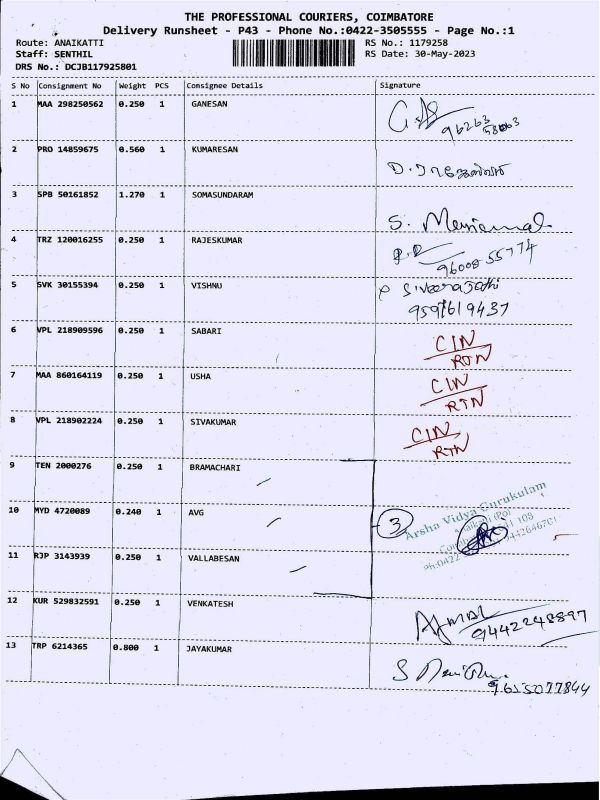 THE PROFESSIONAL COURIERS, COIMBATORE
Delivery Runsheet - P43 - Phone No.:0422-3505555 - Page No.:1
Route: ANAIKATTI RS No.: 1179258
Staff: SENTHIL RS Date: 30-May-2023
DRS No.: DCJB117925801
S No Consignment No Weight PCS Consignee Details Signature
1 MAA 298250562 0.250 1 GANESAN
96263
58063
2 PRO 14859675 0.560 1 KUMARESAN
3 SPB 50161852 1.270 1 SOMASUNDARAM
4 TRZ 120016255 0.250 1 RAJESKUMAR
96008 55774
5 SVK 30155394 0.250 1 VISHNU
9597619437
6 VPL 218909596 0.250 1 SABARI
CIN
RTN
7 MAA 860164119 0.250 1 USHA
CIN
RTN
8 VPL 218902224 0.250 1 SIVAKUMAR
CIN
RTN
9 TEN 2000276 0.250 1 BRAMACHARI
10 MYD 4720089 0.240 1 AVG 3
Arsha Vidya Gurukulam
11 RJP 3143939 0.250 1 VALLABESAN
12 KUR 529832591 0.250 1 VENKATESH
9442248897
13 TRP 6214365 0.800 1 JAYAKUMAR
9655077844